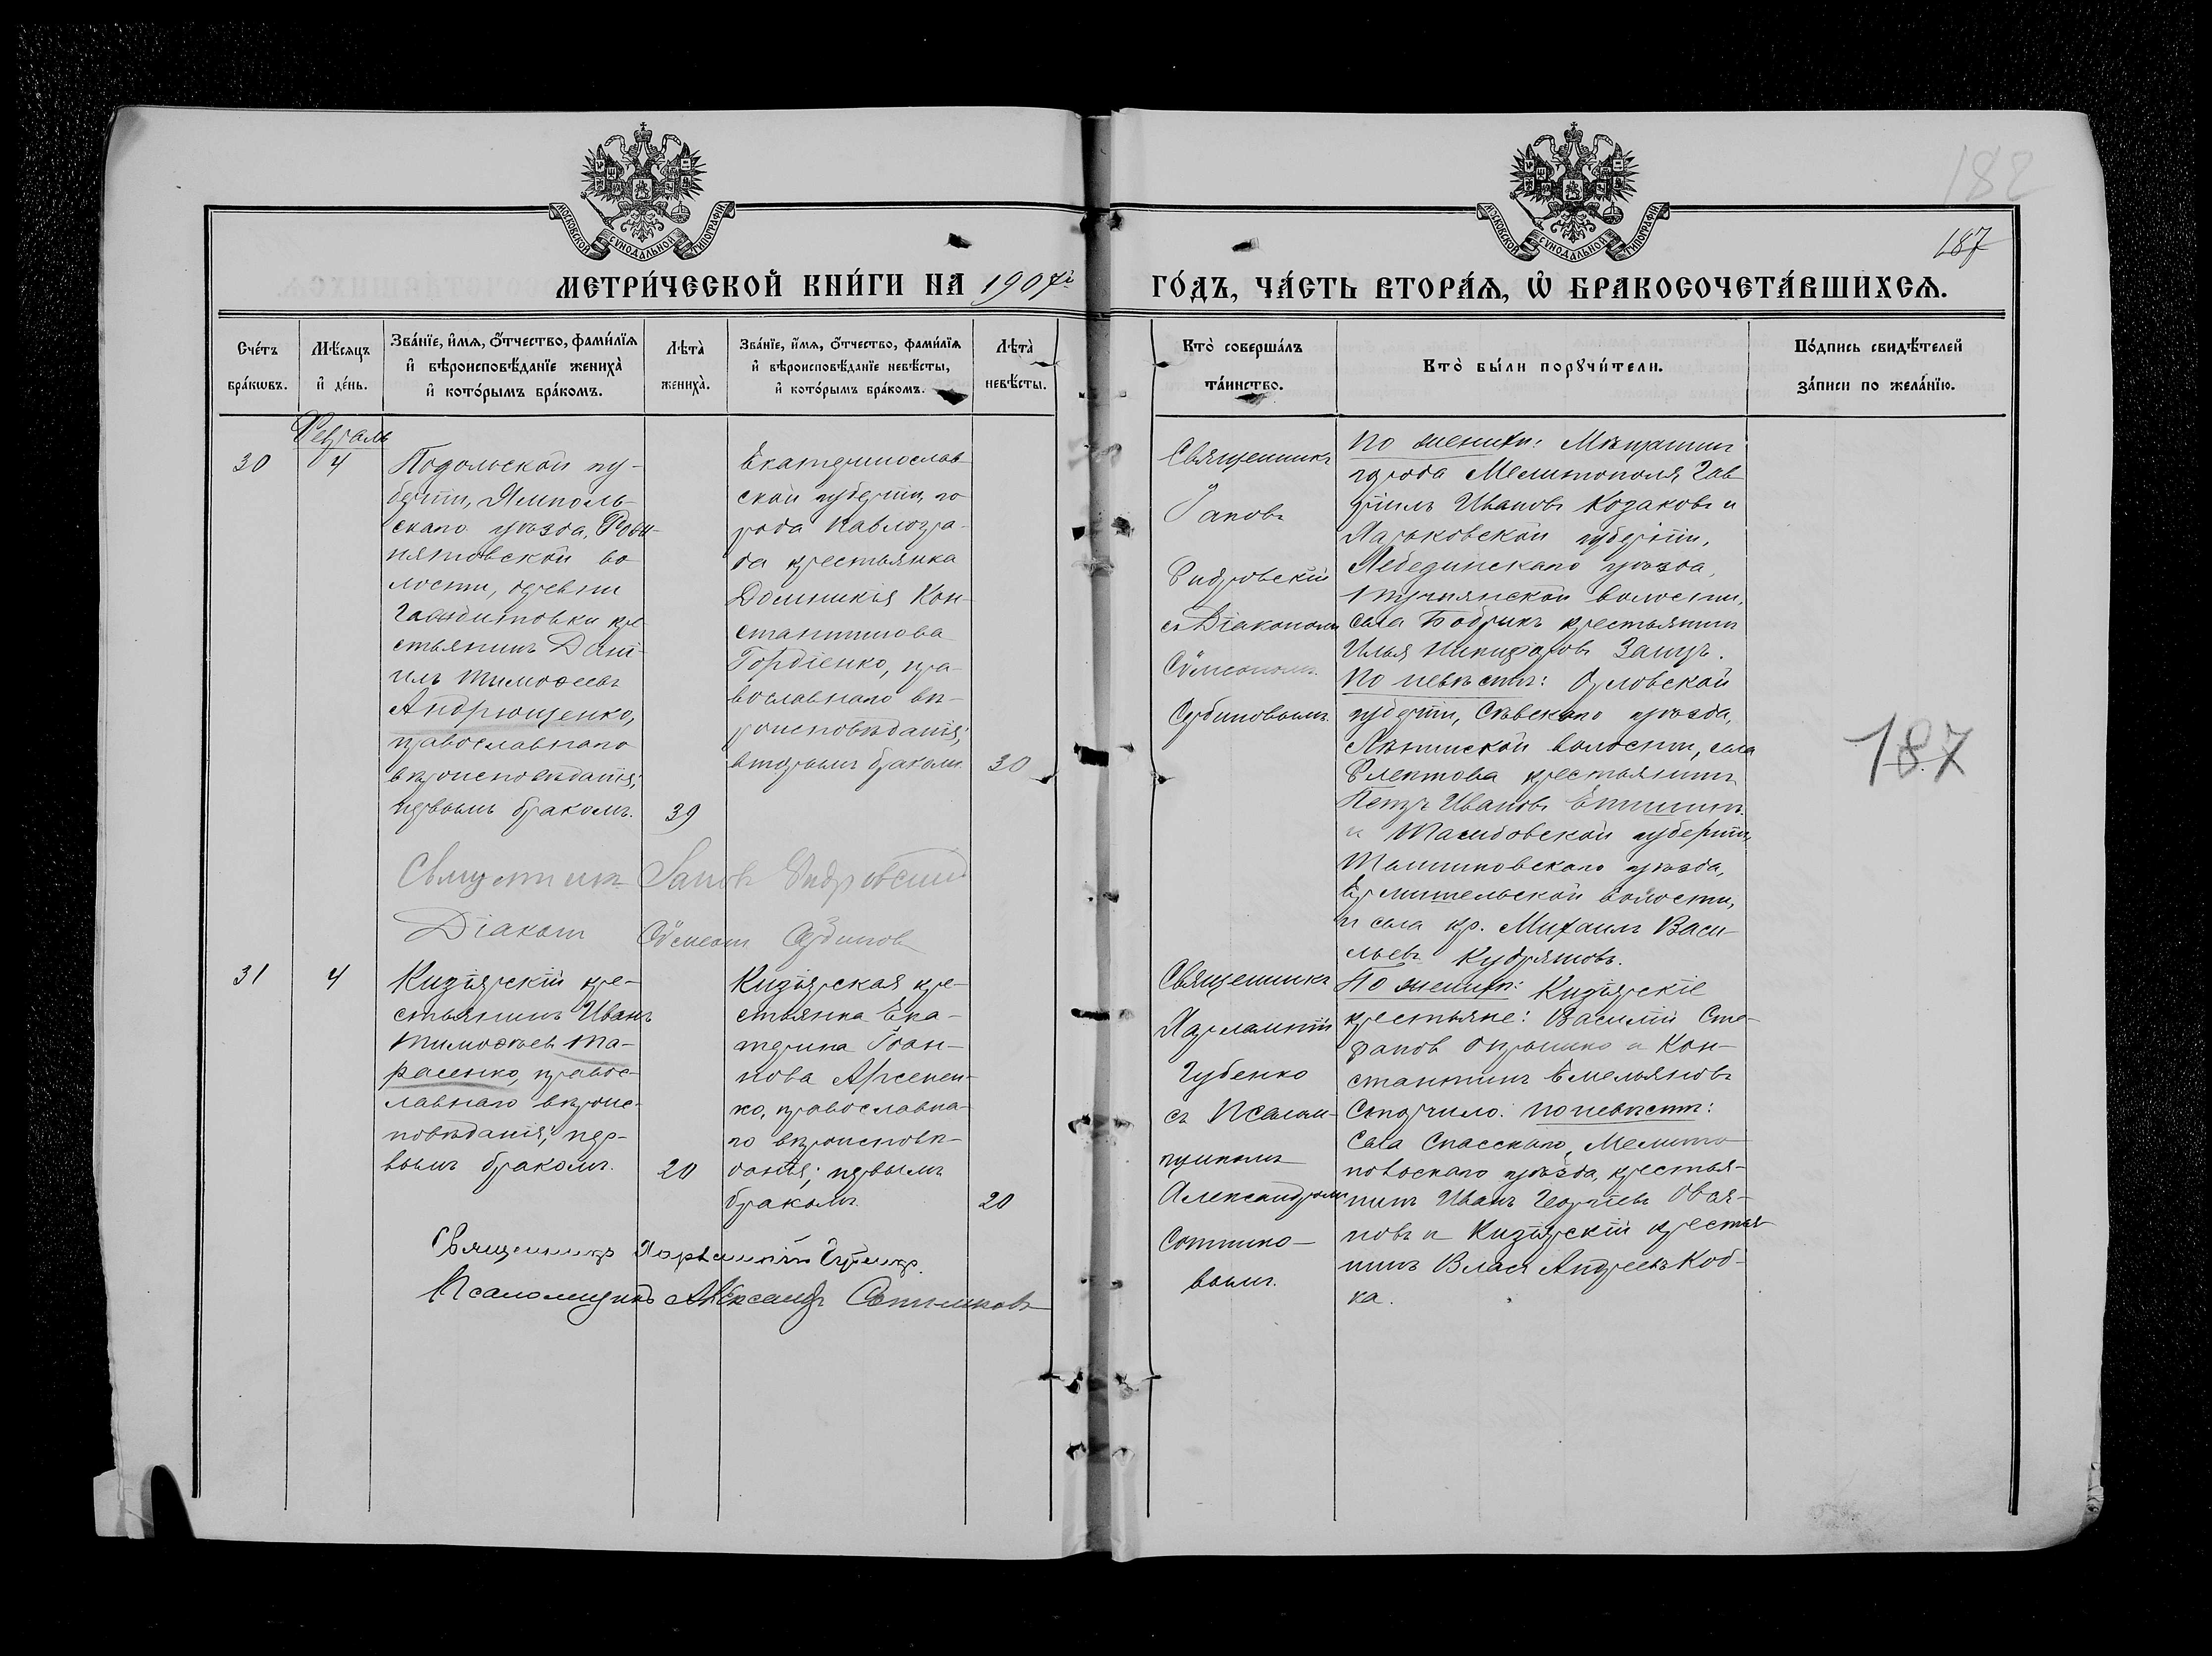 182
187
МОСКОВСКОЙ СѴНОДАЛЬНОЙ ТИПОГРАФІИ
МОСКОВСКОЙ СѴНОДАЛЬНОЙ ТИПОГРАФІИ
МЕТРИ́ЧЕСКОЙ КНИ́ГИ НА 1907й
ГО́ДЪ, ЧА́СТЬ ВТОРА́Ѧ, Ѽ БРАКОСОЧЕТА́ВШИХСѦ.
Сче́тъ бра́кѡвъ.
Мѣ́сѧцъ и҆ де́нь.
Зва́нїе, и҆́мѧ, ѻ҆́тчество, фами́лїѧ и҆ вѣроисповѣ́данїе жениха̀ и҆ кото́рымъ бра́комъ.
Лѣта̀ жениха̀.
Зва́нїе, и҆́мѧ, ѻ҆́тчество, фами́лїѧ и҆ вѣроисповѣ́данїе невѣ́сты, и҆ кото́рымъ бра́комъ.
Лѣта̀ невѣ́сты.
Кто̀ соверша́лъ та́инство.
Кто̀ бы́ли порꙋчи́тели.
По́дпись свидѣ́телей за́писи по жела́нїю.
Февраль
30
4
Подольской гу-
берніи, Ямполь-
скаго уѣзда,
во
лости, деревни
кре
стьянинъ Дані-
илъ Тимоѳеевъ
Андрющенко,
православнаго
вѣроисповѣданія;
первымъ бракомъ.
39
Екатеринослав
ской губерніи, го
рода Павлогра-
да крестьянка
Домникія Кон-
стантинова
Гордіенко, пра-
вославнаго вѣ-
роисповѣданія;
вторымъ бракомъ.
30
Священникъ
Іаковъ
съ Діакономъ
Сѵмеономъ
Сербиновымъ
По женихѣ: Мѣщанинъ
города Мелитополя, Гав
ріилъ Ивановъ Козаковъ и
Харьковской губерніи,
Лебединскаго уѣзда,
волости,
села Бобрикъ крестьянинъ
Илья Никифоровъ Заецъ.
По невѣстѣ: Орловской
губерніи, Сѣвскаго уѣзда,
волости, села
крестьянинъ
Петръ Ивановъ
и Тамбовской губерніи,
уѣзда,
волости,
и села кр. Михаилъ Васи-
льевъ Кудряшовъ.
187
Священникъ Іаковъ
Діаконъ Сѵмеонъ Сербиновъ
31
4
Кизіярскій кре-
стьянинъ Иванъ
Тимоѳеевъ Та-
расенко, правос-
лавнаго вѣроис-
повѣданія; пер-
вымъ бракомъ.
20
Кизіярская кре-
стьянка Ека-
терина Іоан-
нова Арсенен-
ко, православна-
го вѣроисповѣ-
данія; первымъ
бракомъ.
20
Священникъ
Харлампій
Губенко
съ Псалом-
щикомъ
Александромъ
Сотнико-
вымъ.
По женихѣ: Кизіярскіе
крестьяне: Василій Сте-
фановъ и Кон-
стантинъ Емельяновъ
По невѣстѣ:
Села Спасскаго, Мелито
польскаго уѣзда, крестья-
нинъ Иванъ Георгіевъ
и Кизіярскій крестья
нинъ Власъ Андреевъ Коб-
ка.
Священникъ Харлампій Губенко.
Псаломщикъ Александръ Сотниковъ